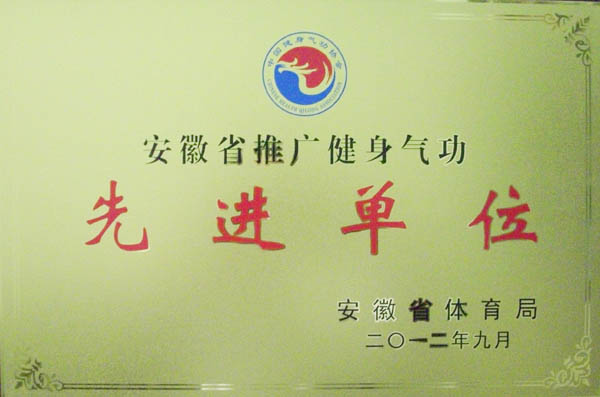 中国健身气功协会
CHINESE HEALTH QIGONG ASSOCIATION
安徽省推广健身气功
先进单位
安徽省体育局
二〇一二年九月